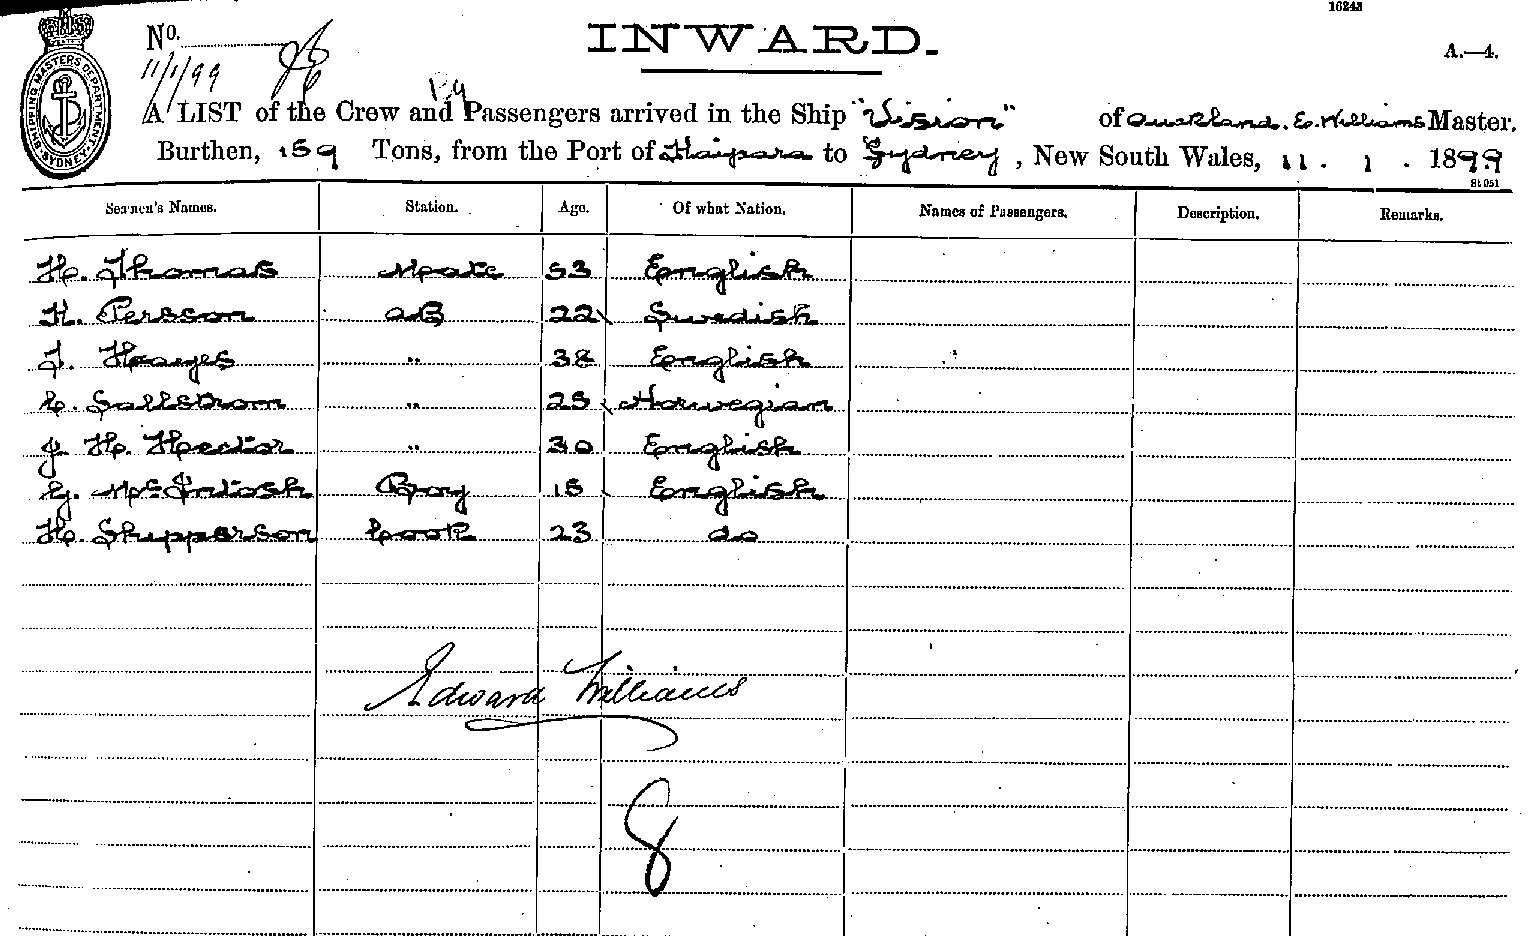 16243
No.
INWARD.
A.—4.
11/1/99
SHIPPING MASTERS DEPARTMENT. SYDNEY.
A LIST of the Crew and Passengers arrived in the Ship "Vision" of Auckland. E. Williams Master.
Burthen, 159 Tons, from the Port of Kaipara to Sydney, New South Wales, 11. 1. 1899
Seamen's Names. Station. Age. Of what Nation. Names of Passengers. Description. Remarks.
H. Thomas Mate 53 English
H. Persson AB 22 Swedish
J. Hayes " 38 English
C. Sallstrom " 25 Norwegian
J. H. Hector " 30 English
G. McIntosh Boy 15 English
H. Shipperson Cook 23 do
Edward Williams
8